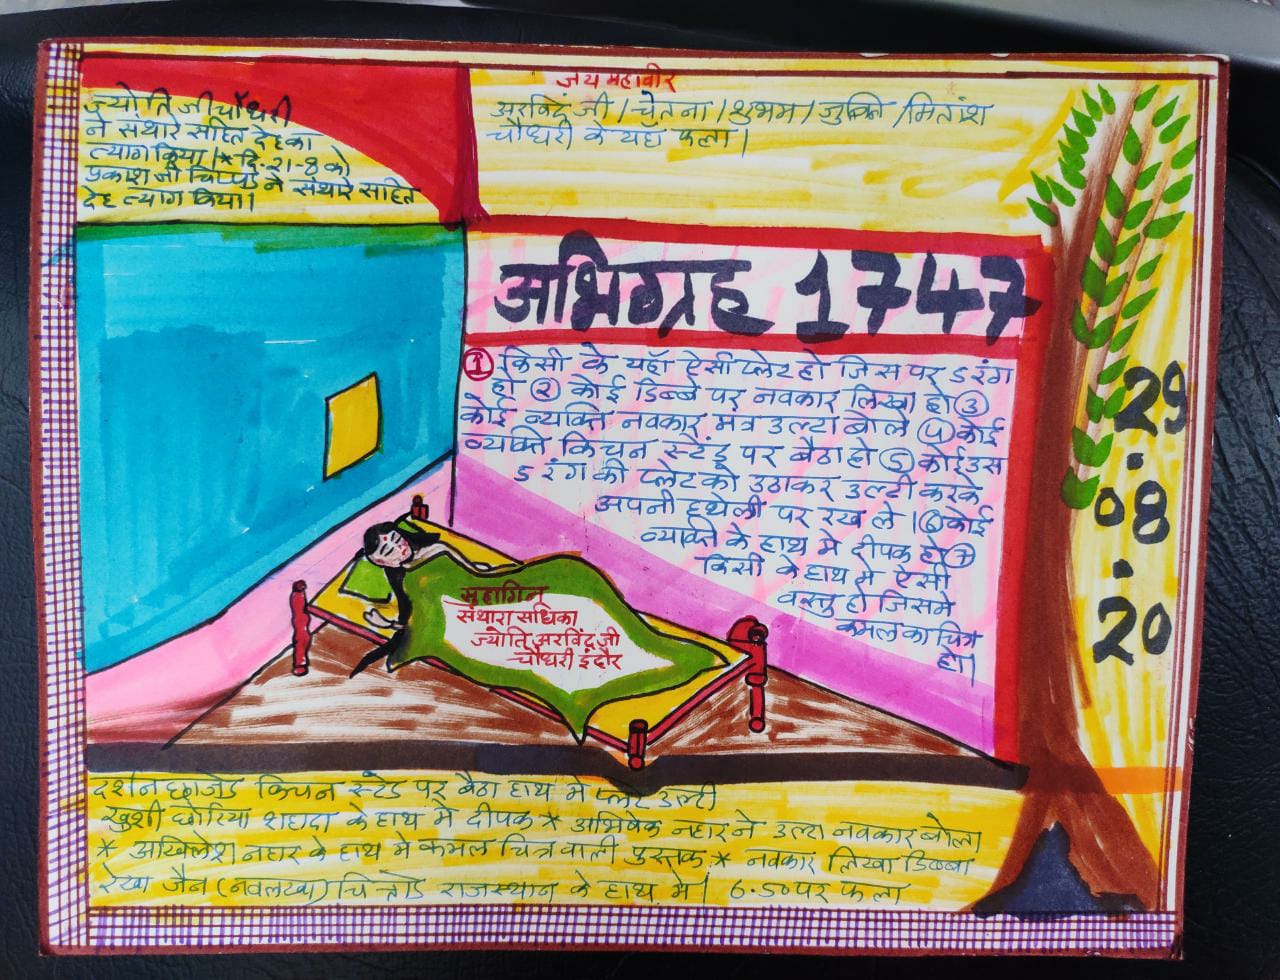 जय महावीर
ज्योति जी चौधरी
ने संथारे सहित देह का
त्याग किया।* दि. 21-8 को
प्रकाश जी ने संथारे सहित
देह त्याग किया।
अरविंद जी / चेतना / शुभम / जुबिन / मितांश
चौधरी के यहाँ फला।
अभिग्रह 1747
① किसी के यहाँ ऐसी प्लेट हो जिस पर 5 रंग
हो ② कोई डिब्बे पर नवकार लिखा हो ③
कोई व्यक्ति नवकार मंत्र उल्टा बोले ④ कोई
व्यक्ति किचन स्टेंड पर बैठा हो ⑤ कोई उस
5 रंग की प्लेट को उठाकर उल्टी करके
अपनी हथेली पर रख ले। ⑥ कोई
व्यक्ति के हाथ मे दीपक हो ⑦
किसी के हाथ मे ऐसी
वस्तु हो जिसमे
कमल का चित्र
हो।
29
.
08
.
20
सुहागिन
संथारा साधिका
ज्योति अरविंद जी
चौधरी इंदौर
दर्शन छाजेड किचन स्टेंड पर बैठा हाथ मे प्लेट उल्टी
खुशी छोरिया शहादा के हाथ मे दीपक * अभिषेक नहार ने उल्टा नवकार बोला
* अखिलेश नहार के हाथ मे कमल चित्र वाली पुस्तक * नवकार लिखा डिब्बा
रेखा जैन (नवलखा) चित्तोड राजस्थान के हाथ मे। 6.50 पर फला